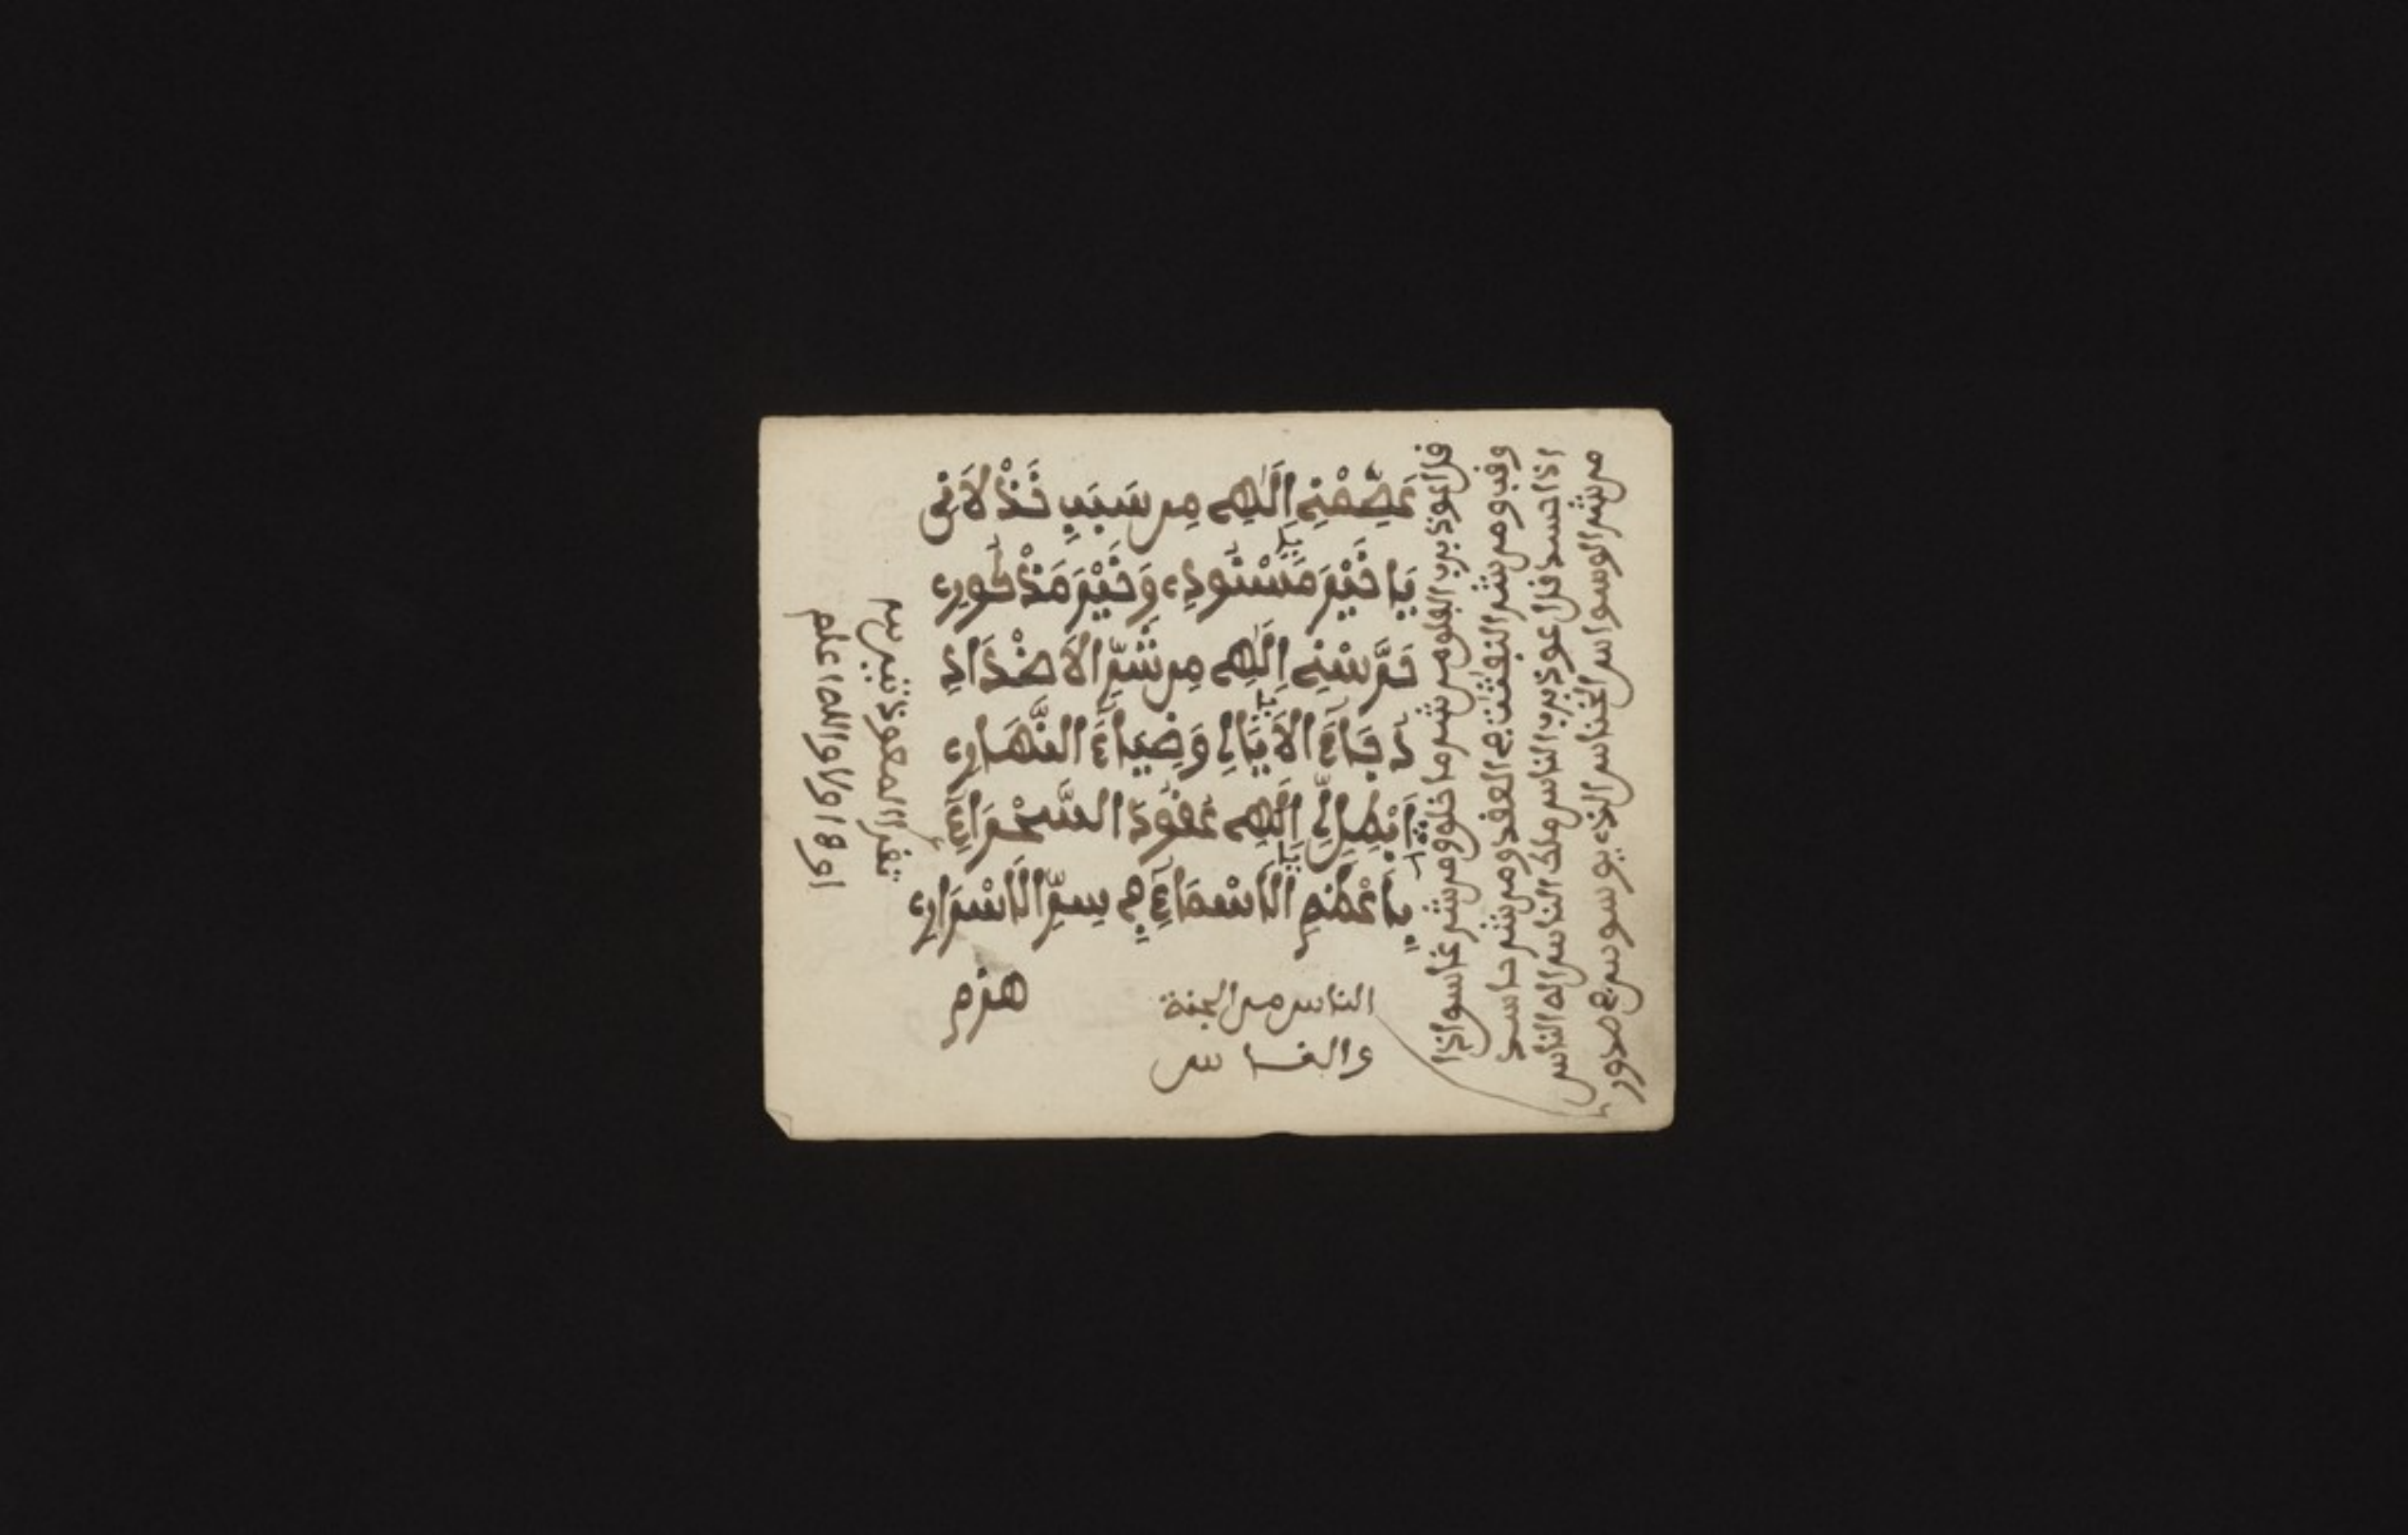 عَصِّمْنِے اِلَٰهِے مِن سَبَبِ خَذْلَانِی
يَا خَيْرَ مَسْئُودِے وَخَيْرَ مَذْكُورِے
حَرَّسْنِے اِلَٰهِے مِن شَرِّ الَاضْدَادِ
دَجَاءَ الَايَّالِ وَضِيَاءَ النَّهَارِے
اَبْطِلْ لِّ اِلَٰهِے عُقُودَ السَّحْرَاءِ
بِأَعْظَمِ الَاسْمَاءِ فِے سِرِّ الَاسْرَارِے
هزم
قل اعوذ برب الفلق من شر ما خلق ومن شر غاسق اذا
وقب ومن شر النفثت فے العقد ومن شر حاسد
اذا حسد قل اعوذ برب الناس ملك الناس اله الناس
من شر الوسواس الخناس الذے يوسوس فے صدور
الناس من الجنة
والناس
تقرا المعوذتين